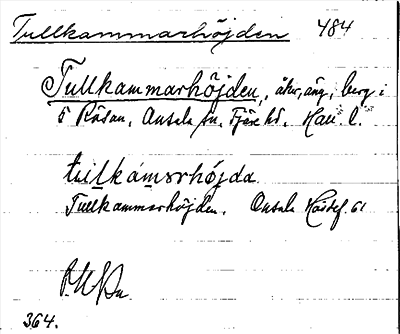 Tullkammarhöjden 484
Tullkammarhöjden, åker, äng, berg i
5 Råsan, Onsala sn. Fjäre hd. Hall. l.
tulkámərhö́jda
Tullkammarhöjden. Onsala Hasslef. 61
364.